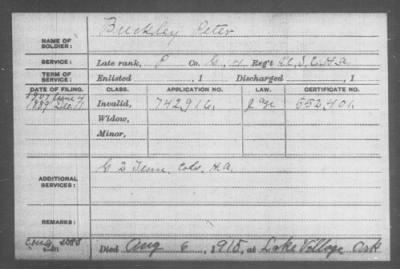 NAME OF SOLDIER: Buckley Peter
SERVICE: Late rank, P Co. G, 4 Reg't U.S.C.H.A
TERM OF SERVICE: Enlisted , 1 Discharged , 1
DATE OF FILING. CLASS. APPLICATION NO. LAW. CERTIFICATE NO.
1889 Dec 11 Invalid, 742916. 552,401.
Widow,
Minor,
ADDITIONAL SERVICES: G 2 Tenn. Cold. H.A.
REMARKS:
Died Aug 6, 1918, at Lake Village Ark